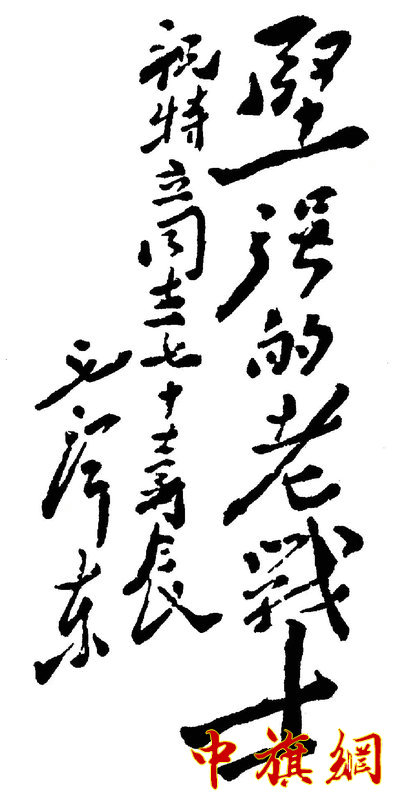 堅强的老戰士
祝特立同志七十壽辰
毛澤东
中旗網